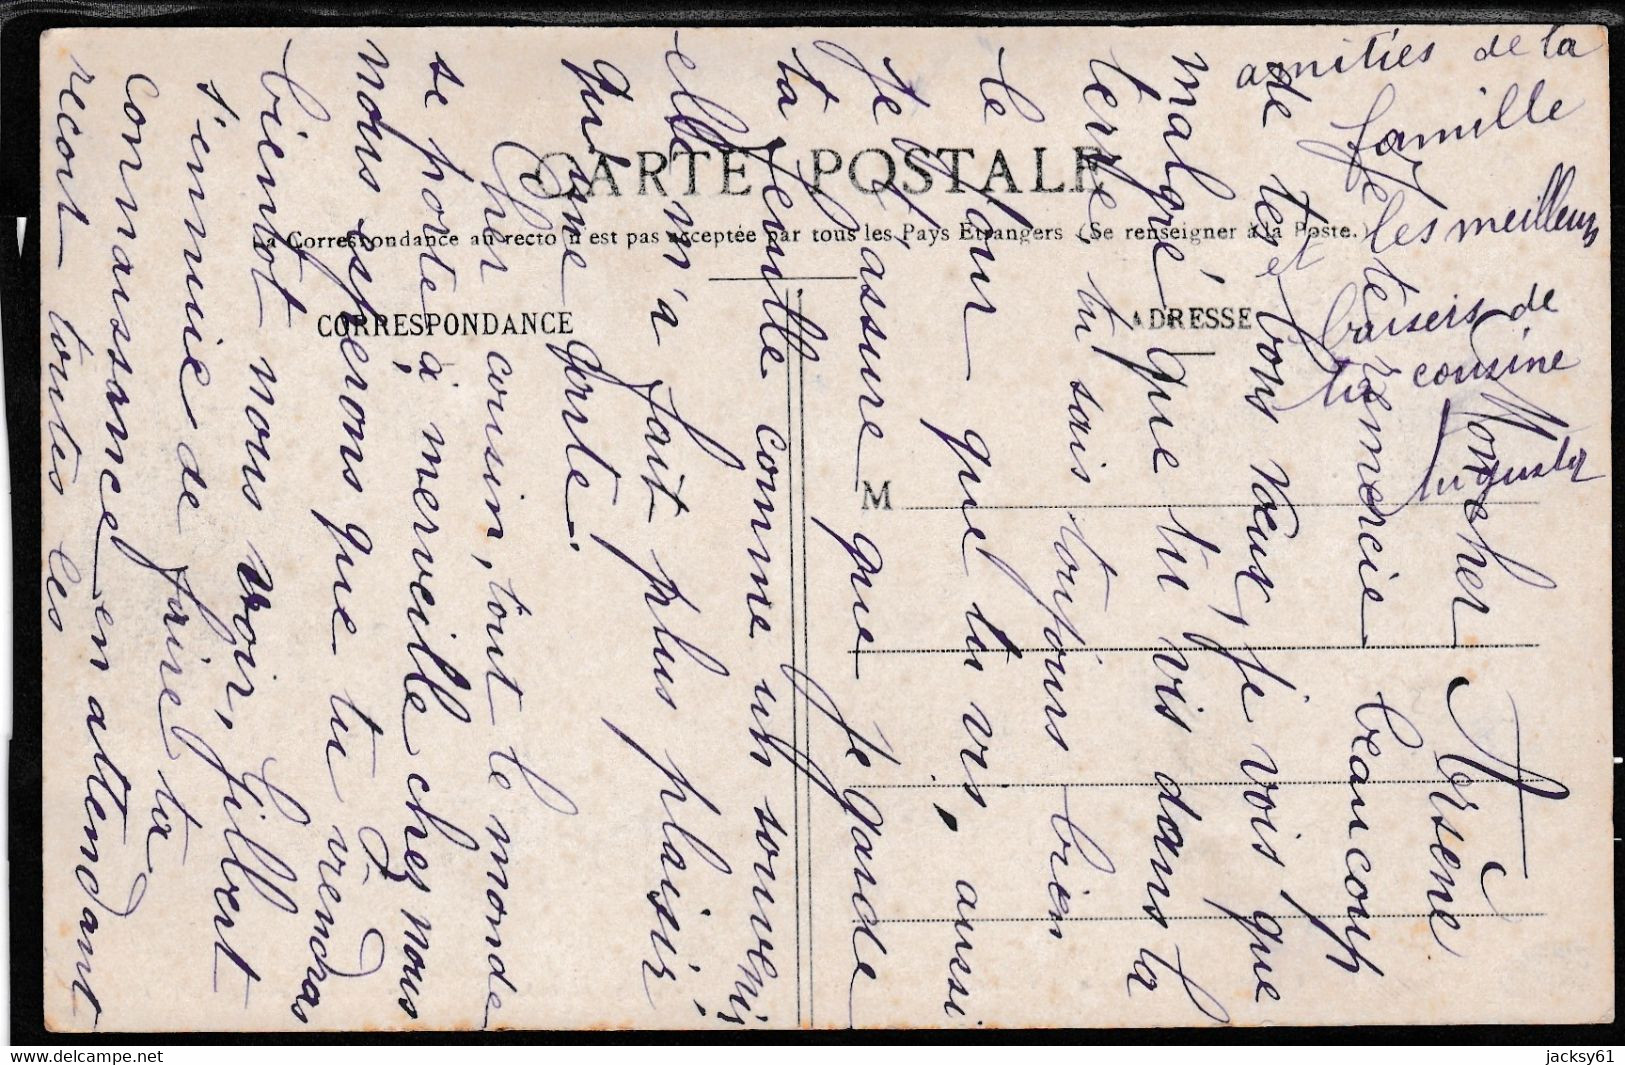 CARTE POSTALE
La Correspondance au recto n'est pas acceptée par tous les Pays Etrangers (Se renseigner à la Poste.)
CORRESPONDANCE
ADRESSE
M
Mon cher Arsène
Je te remercie beaucoup
de tes bons vœux, je vois que
malgré que tu vis dans la
terre tu sais toujours bien
le jour que tu vis, aussi
je t'assure que je garde
ta feuille comme un souvenir,
elle m'a fait plus plaisir
qu'une carte.
Cher cousin, tout le monde
se porte à merveille chez nous
nous esperons que tu viendras
bientot nous voir, Gilbert
s'ennuie de faire ta
connaissance, en attendant
recoit toutes les
amitiés de la
famille
et les meilleurs
baisers de
ta cousine
Augusta
jacksy61